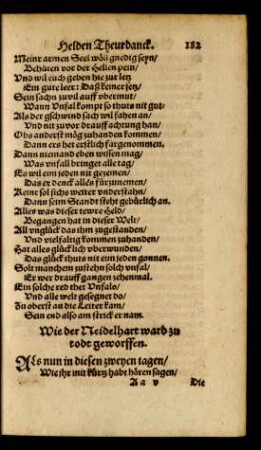 Helden Theurdanck. 182
Meinr armen Seel wöll gnedig seyn/
Behüten vor der Hellen pein/
Und wil euch geben hie zur letz
Ein gute leer: Daß keiner setz/
Sein sachn zuvil auff vbermut/
Wann Vnfal kompt so thuts nit gut/
Als der gschwind sach wil fahen an/
Und nit zuvor drauff achtung han/
Obs anderst mög zuhanden kommen/
Dann ers het erstlich fürgenommen.
Dann niemand eben wissen mag/
Was vnfall bringet alle tag/
Es wil eim jeden nit gezemen/
Das er denck alles fürzunemen/
Keinr sol sichs weiter vnderstahn/
Dann seim Standt steht gebürlich an.
Alles was dieser tewre Held/
Begangen hat in dieser Welt/
All vnglück das ihm zugestanden/
Und vielfaltig kommen zuhanden/
Hat alles glücklich vberwunden/
Das glück thuts nit eim jeden gonnen.
Solt manchem zustehn solch vnfal/
Er wer drauff gangen zehenmal.
Ein solche red thet Vnfalo/
Und alle welt gesegnet do/
Zu oberst an die Leiter kam/
Sein end also am strick er nam.
Wie der Neidelhart ward zu
todt geworffen.
Als nun in diesen zweyen tagen/
Wie ihr mit kürtz habt hören sagen/
A a v Die